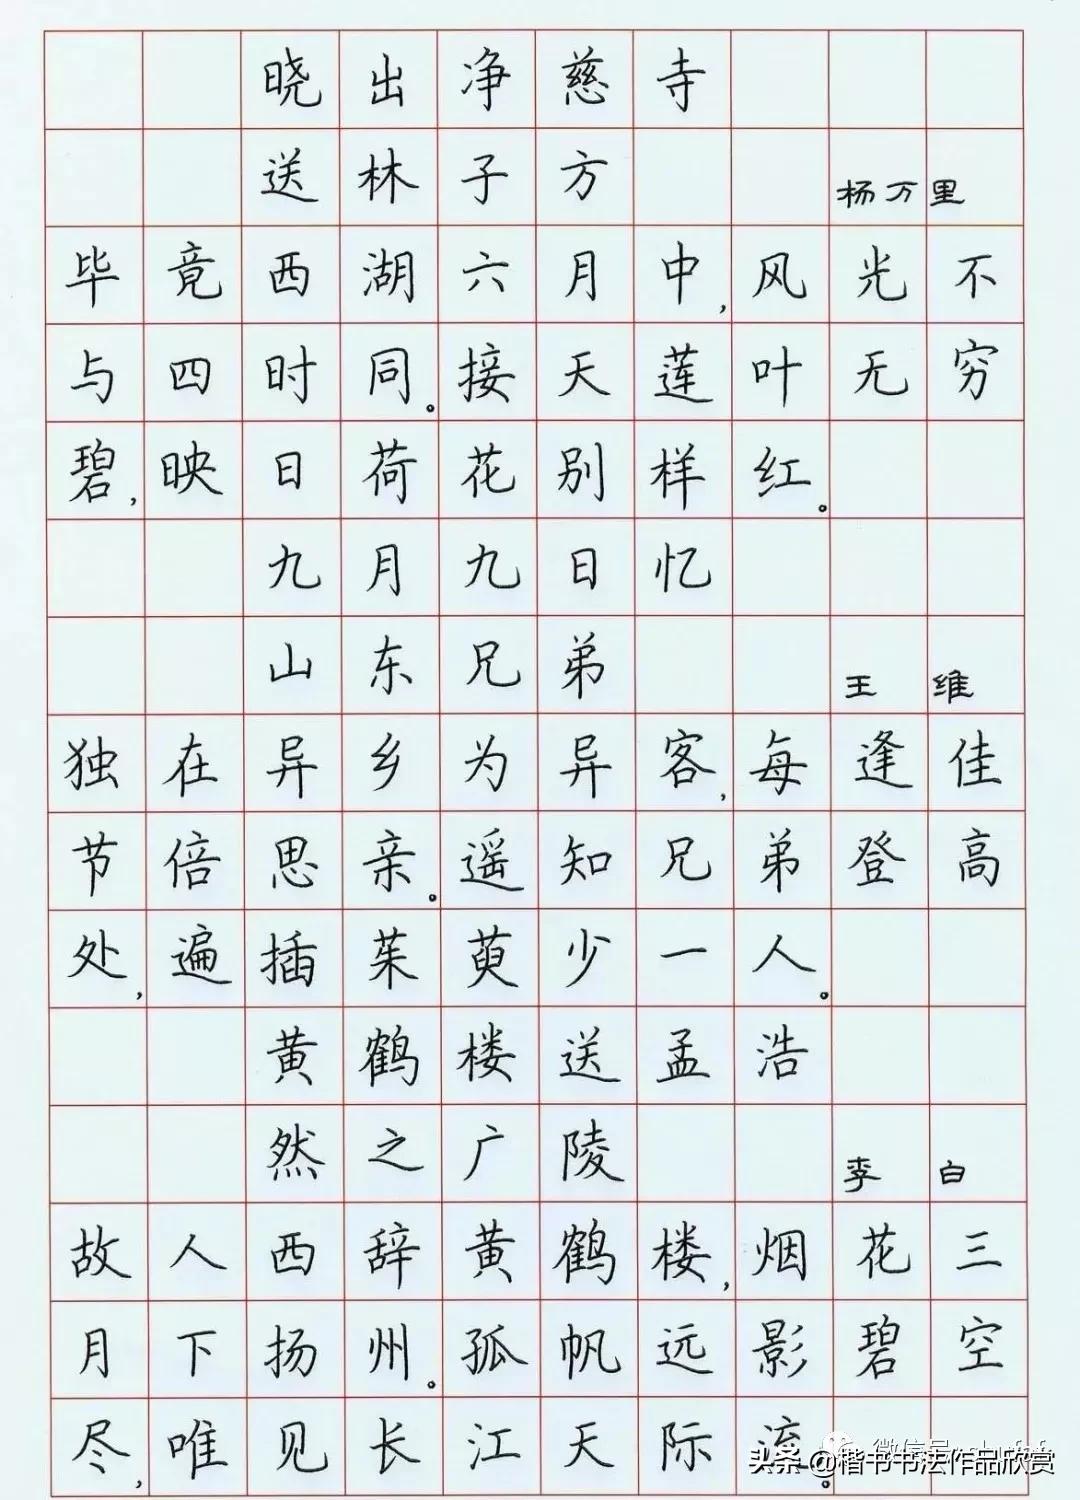 晓出净慈寺
送林子方 杨万里
毕竟西湖六月中,风光不
与四时同。接天莲叶无穷
碧,映日荷花别样红。
九月九日忆
山东兄弟 王维
独在异乡为异客,每逢佳
节倍思亲。遥知兄弟登高
处,遍插茱萸少一人。
黄鹤楼送孟浩
然之广陵 李白
故人西辞黄鹤楼,烟花三
月下扬州。孤帆远影碧空
尽,唯见长江天际流。
微信号
头条@楷书书法作品欣赏